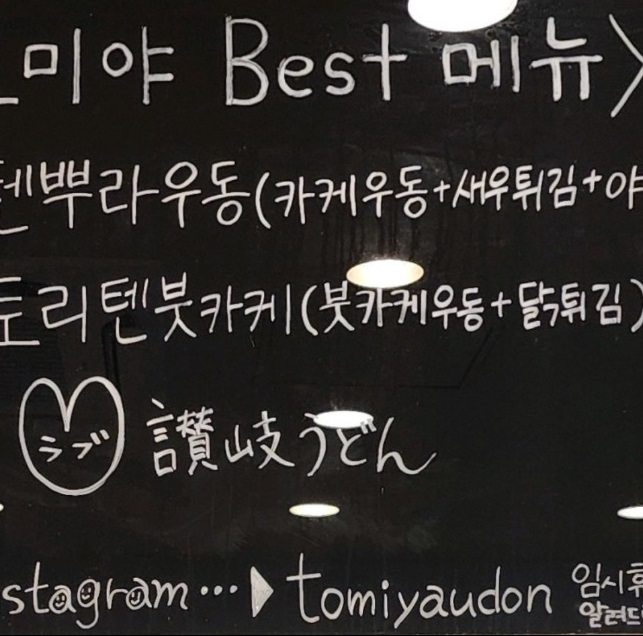 미야 Best 메뉴>
텐뿌라우동(카케우동+새우튀김+야
토리텐붓카케(붓카케우동+닭튀김)
ラブ 讃岐うどん
stagram…▶ tomiyaudon 임시휴
알려드